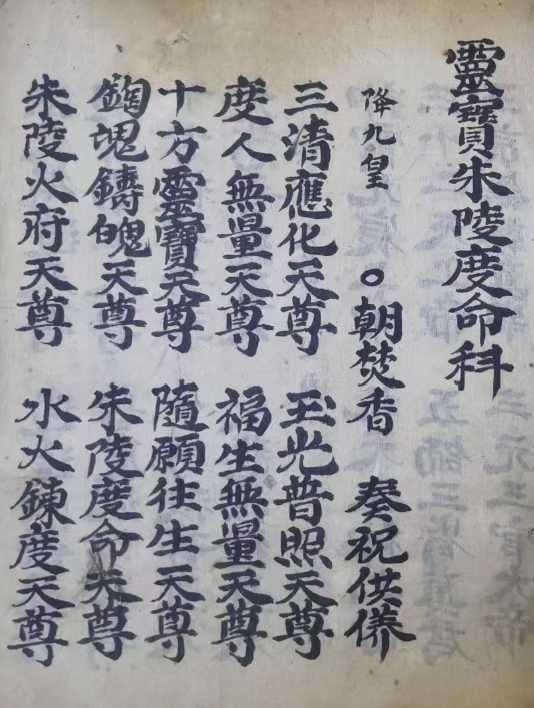 靈寶朱陵度命科
降九皇 ○朝焚香 奏祝供養
三清應化天尊 玉光普照天尊
度人無量天尊 福生無量天尊
十方靈寶天尊 隨願往生天尊
鍧魂鑄魄天尊 朱陵度命天尊
朱陵火府天尊 水火鍊度天尊